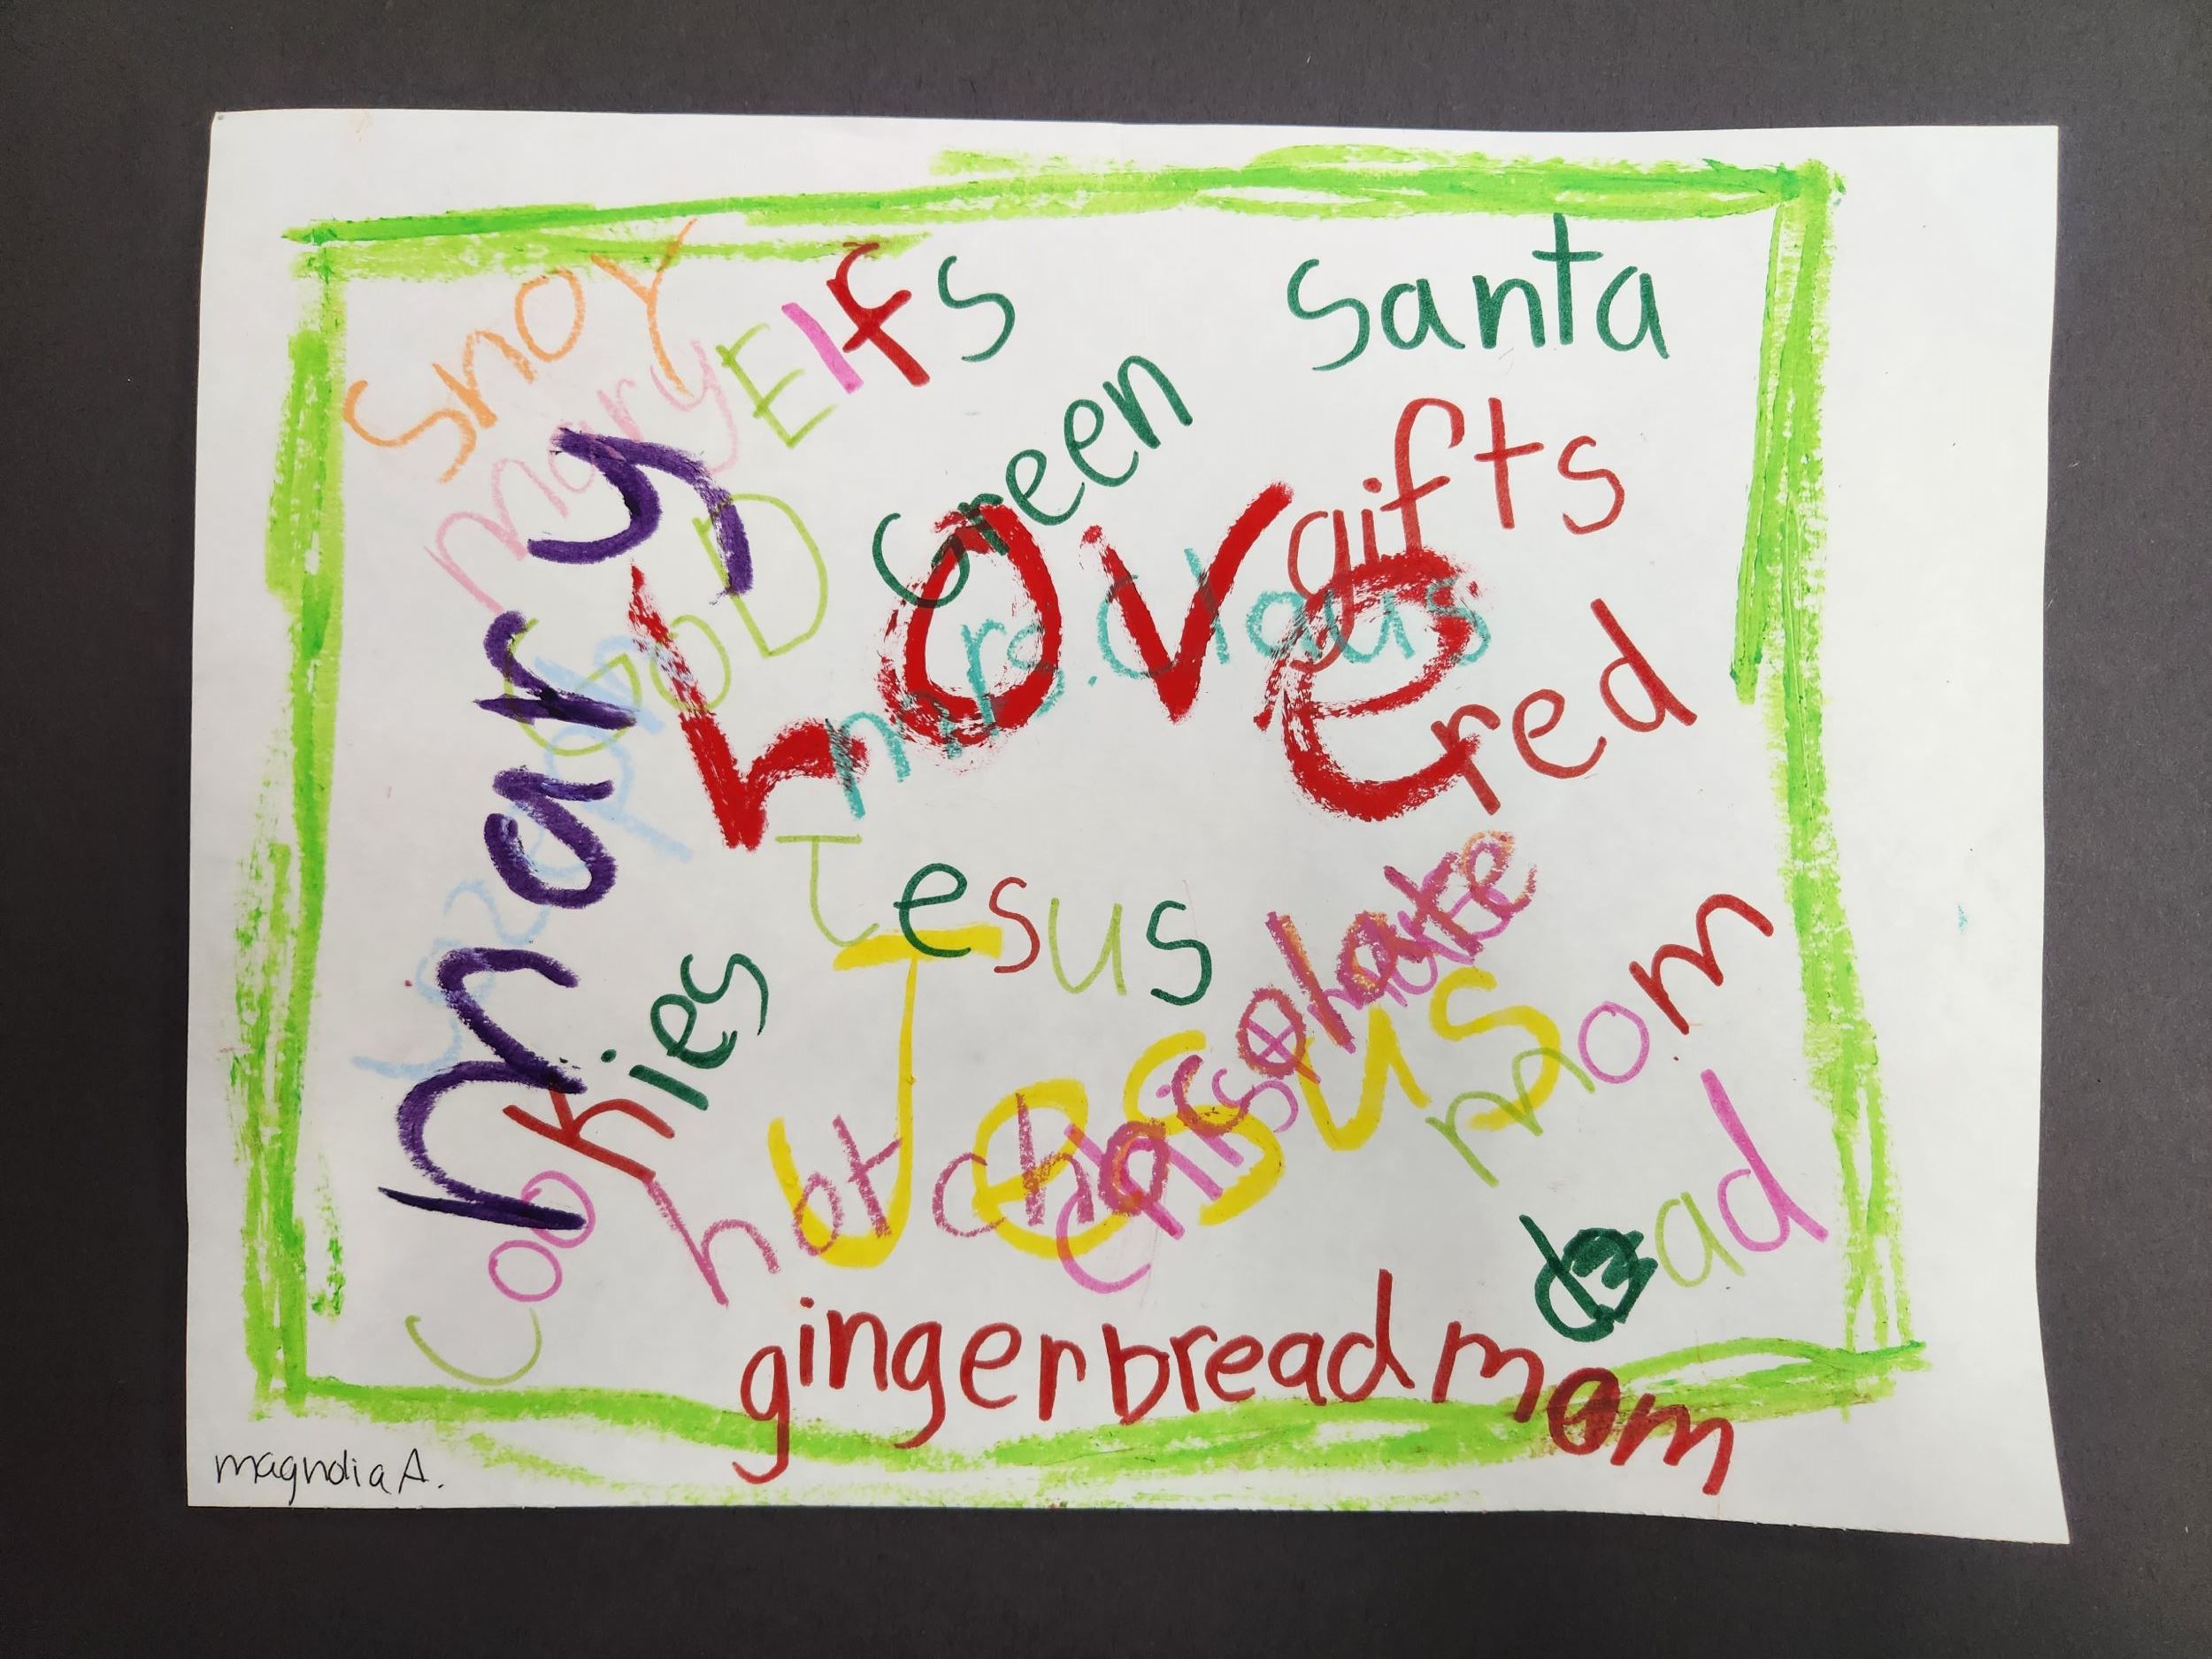 Snoy
Elfs
Santa
mary
Green
gifts
mary
GOD
Love
mrs.claus
red
Jesus
Cookies
Jesus
hot chocolate
mom
dad
gingerbread mom
magnolia A.